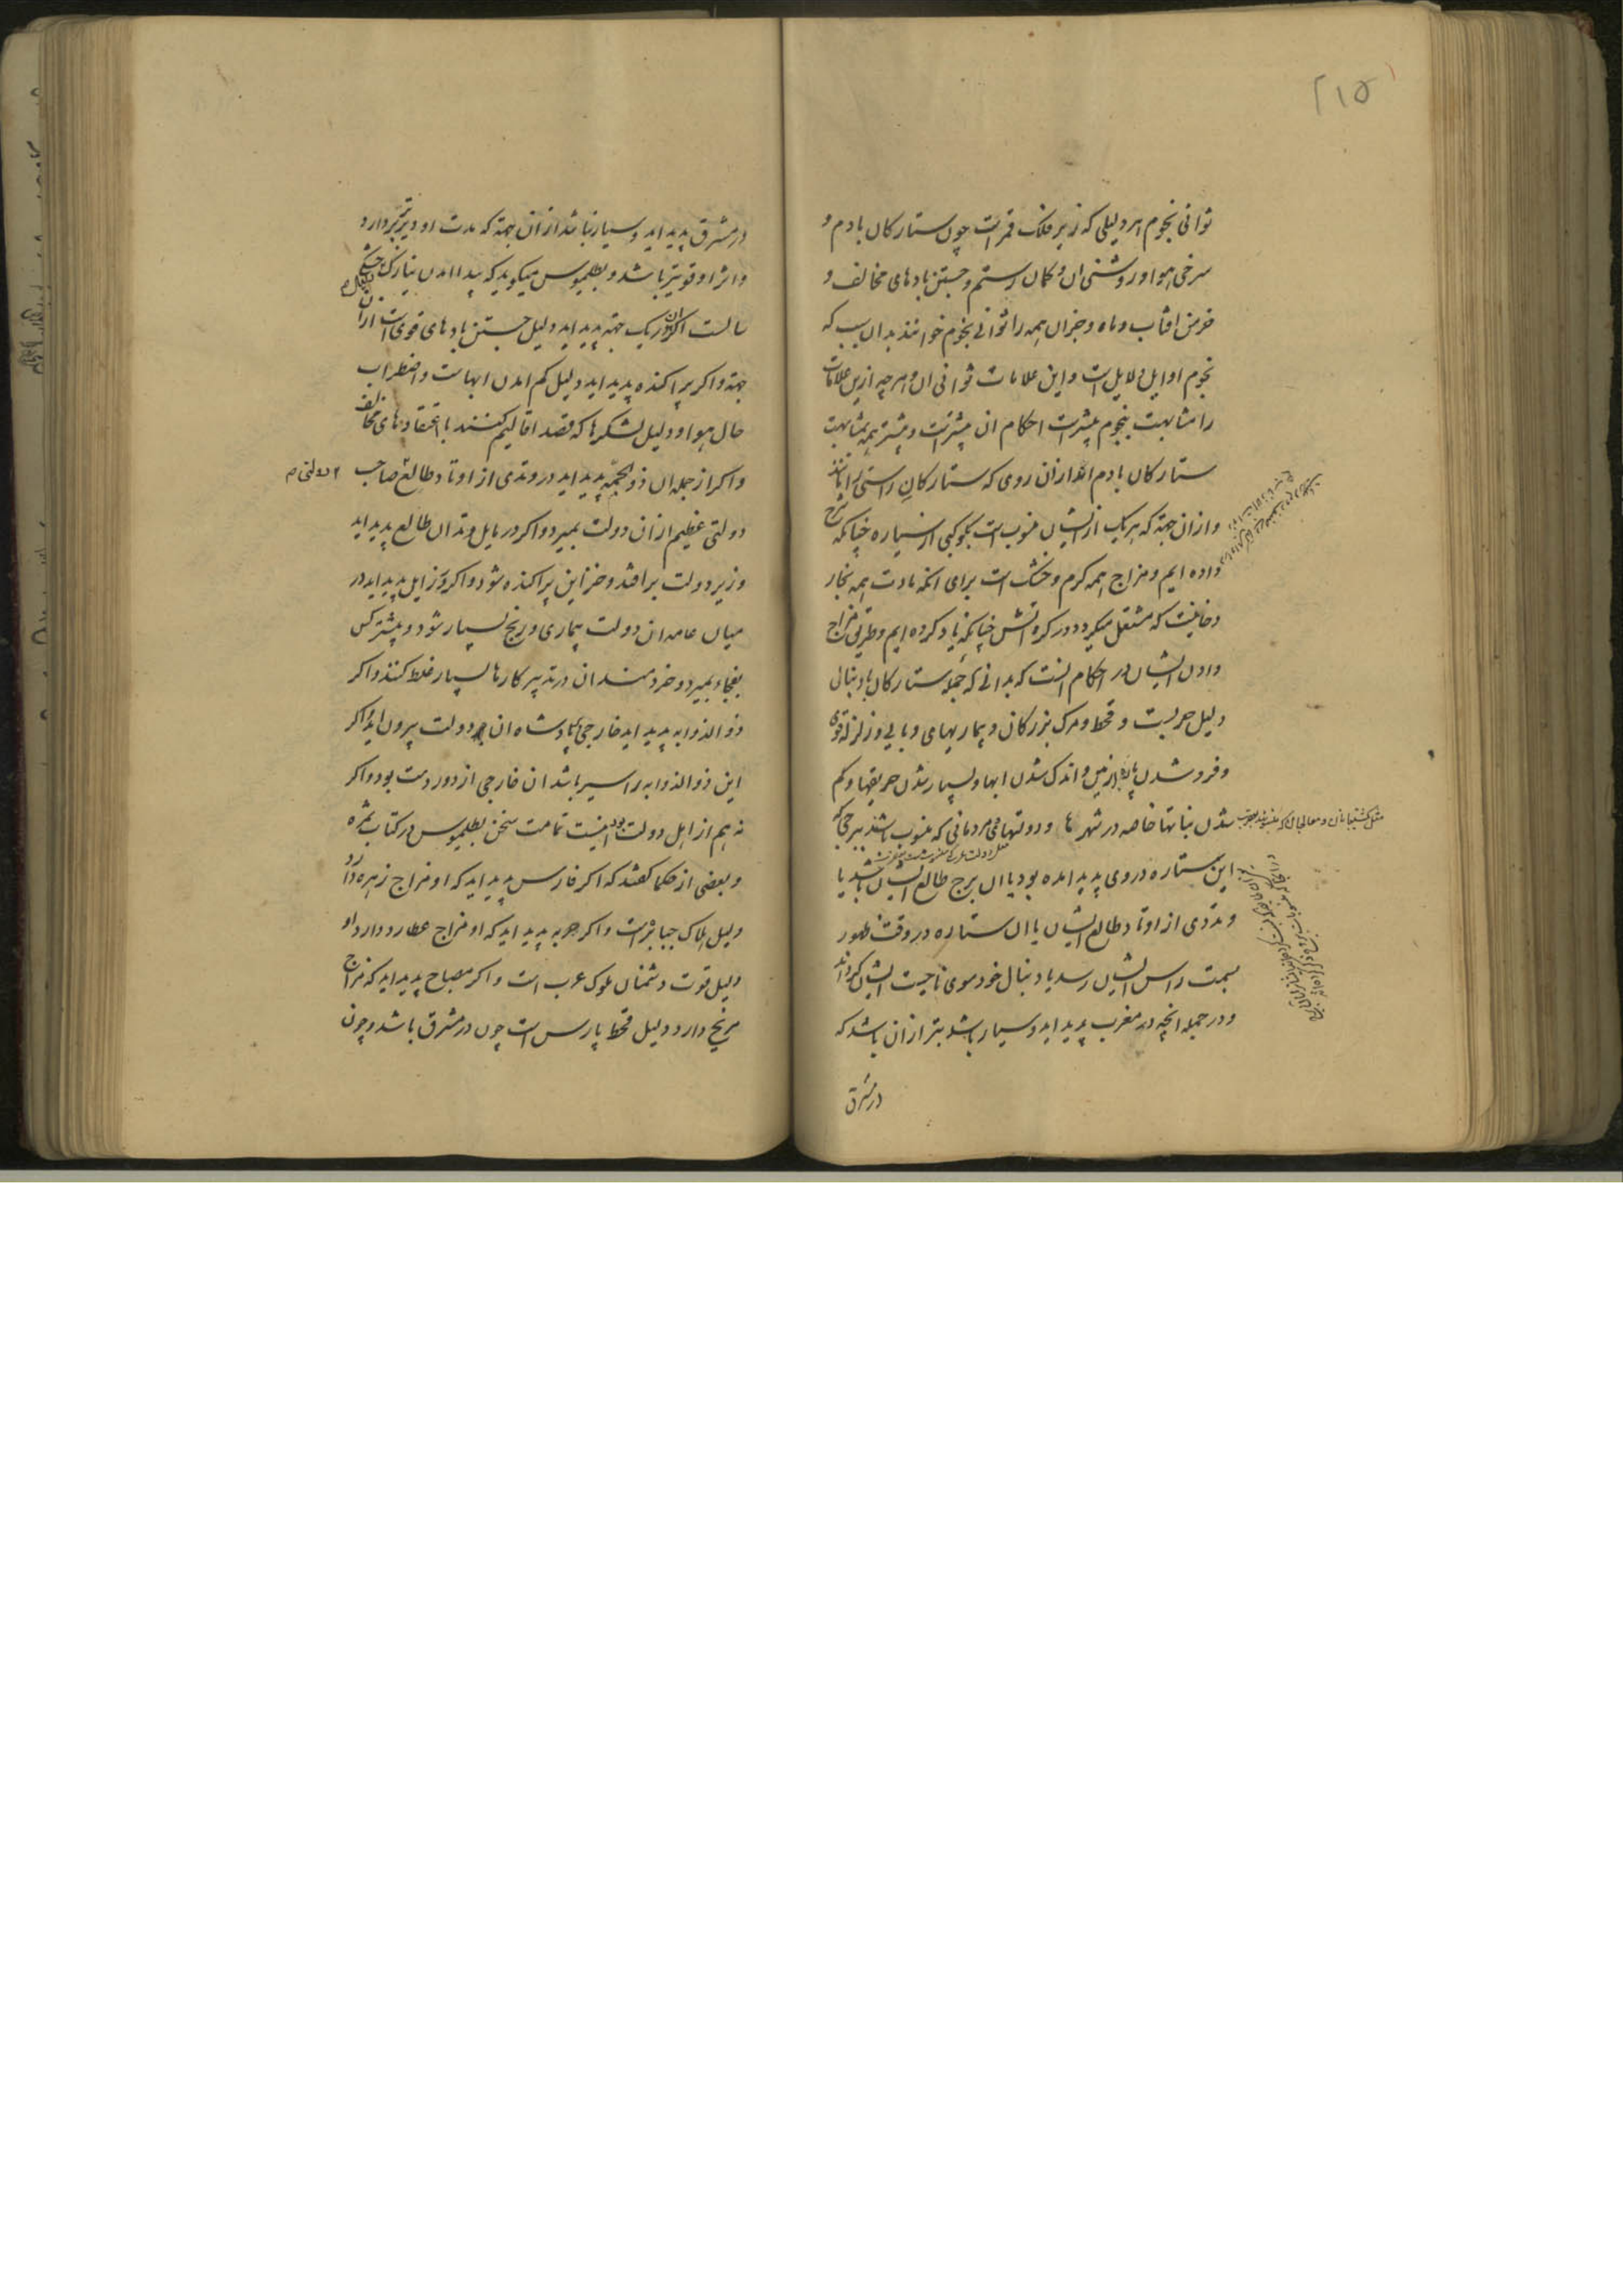 ۲۱۵
ثوانی نجوم هر دلیلی که زیر فلک قمرست چون ستارکان بادم و
سرخی هوا و روشنی ان و کمان رستم و جستن بادهای مخالف و
خرمن افتاب و ماه و جزان همه را ثوانی نجوم خوانند بدان سبب که
نجوم اوایل دلایل است و این علامات ثوانی ان و هر چه ازین علامات
را مشابهت بنجوم بیشترست احکام ان بیشترست و بیشتر همه بمشابهت
ستارکان بادم اند ازان روی که ستارکان راستی را مانند
و ازان جهة که هر یک از ایشان منسوب است بکوکبی از سیاره چنانکه شرح
داده ایم و مزاج همه کرم و خشک است برای انکه مادت همه بخار
دخانیست که مشتعل میکردد در کره اتش چنانکه یاد کرده ایم و طریق مزاج
دادن ایشان در احکام انست که بدانی که جمله ستارکان بادنبال
دلیل حربست و قحط و مرک بزرکان و بیماریهای وبایی و زلزله قوی
و فرو شدن پاره از زمین و اندک شدن ابها و بسیار شدن حریقها و کم
شدن نباتها خاصه در شهرها و دولتهای مردمانی که منسوب باشند ببرجی که
مثل کشتیبانان و معالجان که منسوبند بعقرب
این ستاره در وی پدید امده بود یا ان برج طالع ایشان باشد یا
وتدی از اوتاد طالع ایشان یا ان ستاره در وقت ظهور
بسمت راس ایشان رسد یا دنبال خود سوی ناحیت ایشان کرداند
و در جمله انچه در مغرب پدید اید و سیار باشد بتر ازان باشد که
در مشرق
در مشرق پدید اید و سیار نباشد ازان جهة که مدت او دیرتر بردارد
و اثر او قویتر باشد و بطلمیوس میکوید که پیدا امدن نیازک خشکی
سالست اکر ان در یک جهة پدید اید دلیل جستن بادهای قوی است ازان
جهة و اکر پراکنده پدید اید دلیل کم امدن ابهاست و اضطراب
حال هوا و دلیل لشکرها که قصد اقالیم کنند با اعتقادهای مخالف
و اکر از جمله ان ذو الجمه پدید اید در وتدی از اوتاد طالع صاحب
دولتی عظیم ازان دولت بمیرد و اکر در مایل وتد ان طالع پدید اید
وزیر دولت برافتد و خزاین پراکنده شود و اکر در زایل پدید اید در
میان عامه ان دولت بیماری و رنج بسیار شود و بیشتر کس
بفجاء بمیرد و خردمندان در تدبیر کارها بسیار غلط کنند و اکر
ذو الذوابه پدید اید خارجی بر پادشاه ان دولت بیرون اید و اکر
این ذو الذوابه را سیر باشد ان خارجی از دور دست بود و اکر
نه هم از اهل دولت بود اینست تمامت سخن بطلمیوس در کتاب ثمره
و بعضی از حکما کفتند که اکر فارس پدید اید که او مزاج زهره دارد
دلیل هلاک جبابرست و اکر حربه پدید اید که او مزاج عطارد دارد او
دلیل قوت دشمنان ملوک عرب است و اکر مصباح پدید اید که مزاج
مریخ دارد دلیل قحط پارس است چون در مشرق باشد و چون